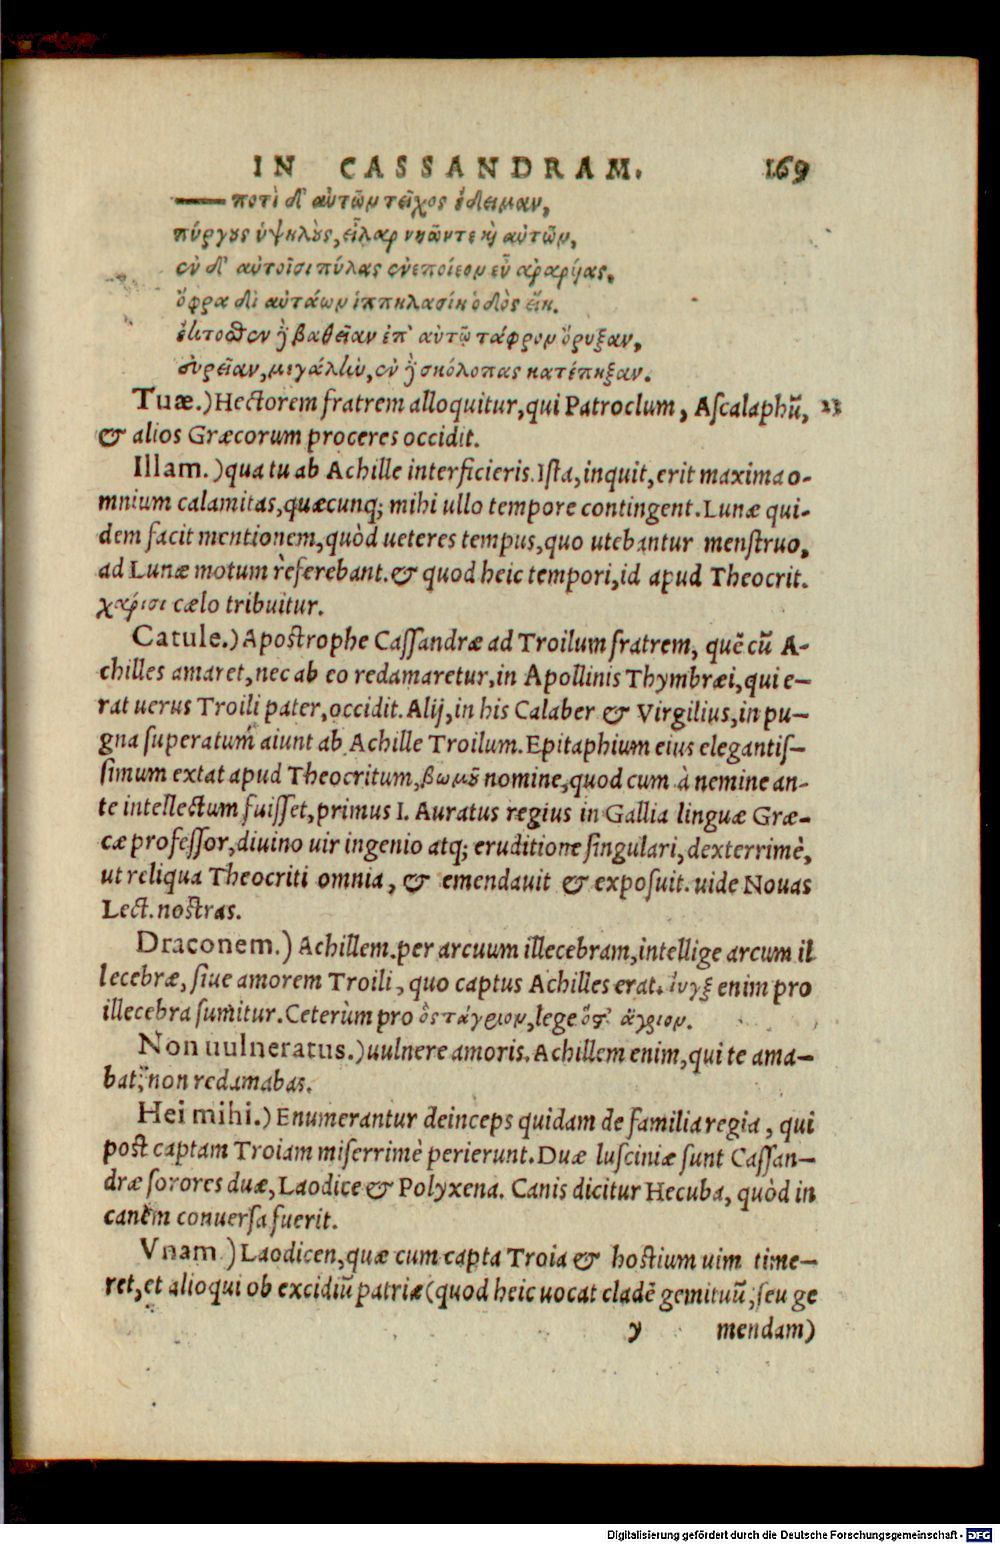 IN CASSANDRAM. 169
—— ποτὶ δ' αὐτῶμ τεῖχος ἔδειμαν,
πύργους ὑψηλοὺς, εἶλαρ νηῶν τε καὶ αὐτῶμ,
ἐν δ' αὐτοῖσι πύλας ἐνεποίεομ εὖ ἀραρυίας,
ὄφρα δι αὐτάωμ ἱππηλασίη ὁδὸς εἴη.
ἔκτοσθεν δὲ βαθεῖαν ἐπ' αὐτῷ τάφρομ ὄρυξαν,
εὐρεῖαν, μεγάλην, ἐν δὲ σκόλοπας κατέπηξαν.
Tuæ.) Hectorem fratrem alloquitur, qui Patroclum, Ascalaphũ, 23
& alios Græcorum proceres occidit.
Illam.) qua tu ab Achille interficieris. Ista, inquit, erit maxima o-
mnium calamitas, quæcunq; mihi ullo tempore contingent. Lunæ qui-
dem facit mentionem, quòd ueteres tempus, quo utebantur menstruo,
ad Lunæ motum referebant. & quod heic tempori, id apud Theocrit.
cælo tribuitur.
Catule.) Apostrophe Cassandræ ad Troilum fratrem, quẽ cũ A-
chilles amaret, nec ab eo redamaretur, in Apollinis Thymbræi, qui e-
rat uerus Troili pater, occidit. Alij, in his Calaber & Virgilius, in pu-
gna superatum aiunt ab Achille Troilum. Epitaphium eius elegantis-
simum extat apud Theocritum, βωμοῦ nomine, quod cum à nemine an-
te intellectum fuisset, primus I. Auratus regius in Gallia linguæ Græ-
cæ professor, diuino uir ingenio atq; eruditione singulari, dexterrimè,
ut reliqua Theocriti omnia, & emendauit & exposuit. uide Nouas
Lect. nostras.
Draconem.) Achillem. per arcuum illecebram, intellige arcum il
lecebræ, siue amorem Troili, quo captus Achilles erat. ἴυγξ enim pro
illecebra sumitur. Ceterùm pro ὃς τάγριομ, lege ὅστ' ἄγριομ.
Non uulneratus.) uulnere amoris. Achillem enim, qui te ama-
bat, non redamabas.
Hei mihi.) Enumerantur deinceps quidam de familia regia, qui
post captam Troiam miserrimè perierunt. Duæ lusciniæ sunt Cassan-
dræ sorores duæ, Laodice & Polyxena. Canis dicitur Hecuba, quòd in
canem conuersa fuerit.
Vnam.) Laodicen, quæ cum capta Troia & hostium uim time-
ret, et alioqui ob excidiũ patriæ (quod heic uocat cladẽ gemituũ, seu ge
y mendam)
Digitalisierung gefördert durch die Deutsche Forschungsgemeinschaft - DFG